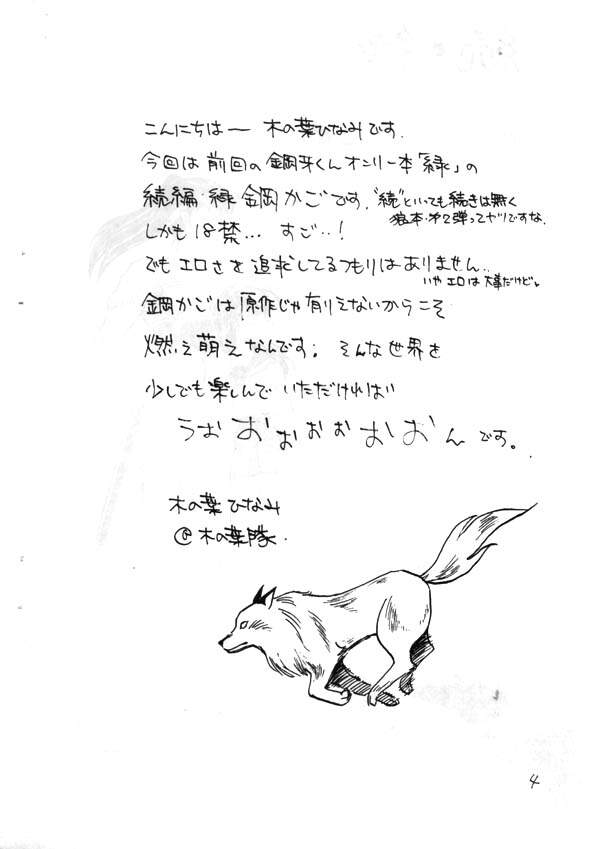 こんにちはー 木の葉ひなみです.
今回は前回の鋼牙くんオンリー本「緑」の
続編・緑 鋼かごです. "続"といっても続きは無く
狼本・第2弾ってヤツですな.
しかも18禁… すご・・!
でもエロさを追求してるつもりはありません..
いや エロは大事だけど。
鋼かごは原作じゃ有りえないからこそ
燃え萌えなんです; そんな世界を
少しでも楽しんでいただければ
うおおぉぉぉおおんです。
木の葉ひなみ
@木の葉隊.
4